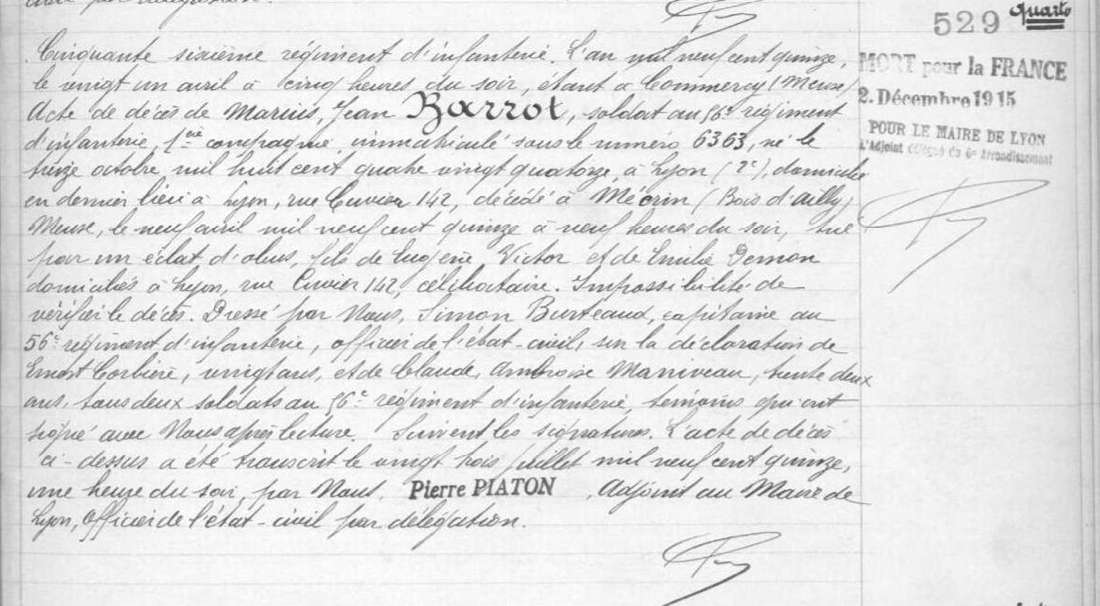 529 quarto
Cinquante sixième régiment d'infanterie. L'an mil neuf cent quinze,
le vingt un avril à cinq heures du soir, étant à Commercy (Meuse)
Acte de décès de Marius, Jean Barrot, soldat au 56e régiment
d'infanterie, 1ère compagnie, immatriculé sous le numéro 6363, né le
treize octobre mil huit cent quatre vingt quatorze, à Lyon (2e), domicilié
en dernier lieu à Lyon, rue Cuvier 142, décédé à Mécrin (Bois d'Ailly)
Meuse, le neuf avril mil neuf cent quinze à neuf heures du soir, tué
par un éclat d'obus, fils de Eugène, Victor et de Emilie Demon
domiciliés à Lyon, rue Cuvier 142, célibataire. Impossibilité de
vérifier le décès. Dressé par Nous, Simon Burteaud, capitaine au
56e régiment d'infanterie, officier de l'état-civil, sur la déclaration de
Ernest Corbière, vingt ans, et de Claude, Ambroise Maniveau, trente deux
ans, tous deux soldats au 56e régiment d'infanterie, témoins qui ont
signé avec Nous après lecture. Suivent les signatures. L'acte de décès
ci-dessus a été transcrit le vingt trois juillet mil neuf cent quinze,
une heure du soir, par Nous, Pierre PIATON, Adjoint au Maire de
Lyon, Officier de l'état-civil par délégation.
MORT pour la FRANCE
2. Décembre 1915
POUR LE MAIRE DE LYON
L'Adjoint délégué du 6e Arrondissement